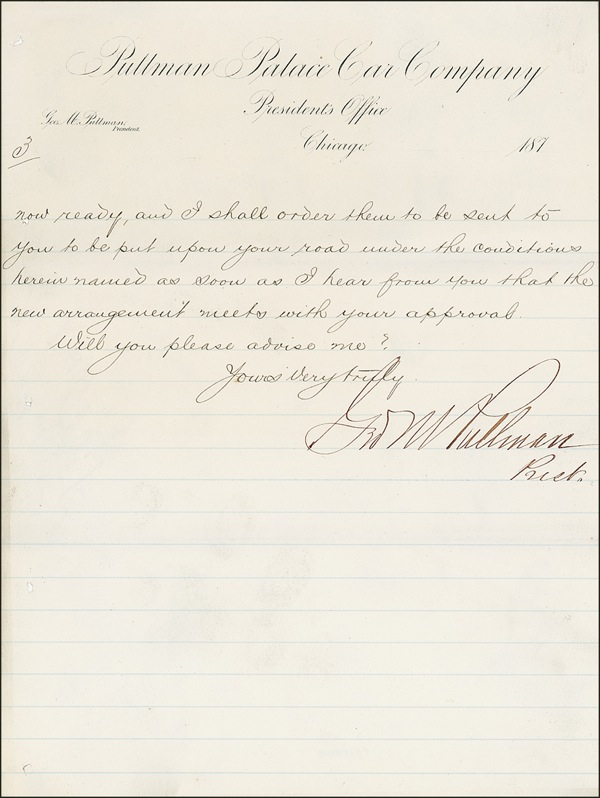 Pullman Palace Car Company
Presidents Office
Geo. M. Pullman,
President.
Chicago 187
3
now ready, and I shall order them to be sent to
you to be put upon your road under the conditions
herein named as soon as I hear from you that the
new arrangement meets with your approval.
Will you please advise me?
Yours Very truly
Geo M Pullman
Prest.